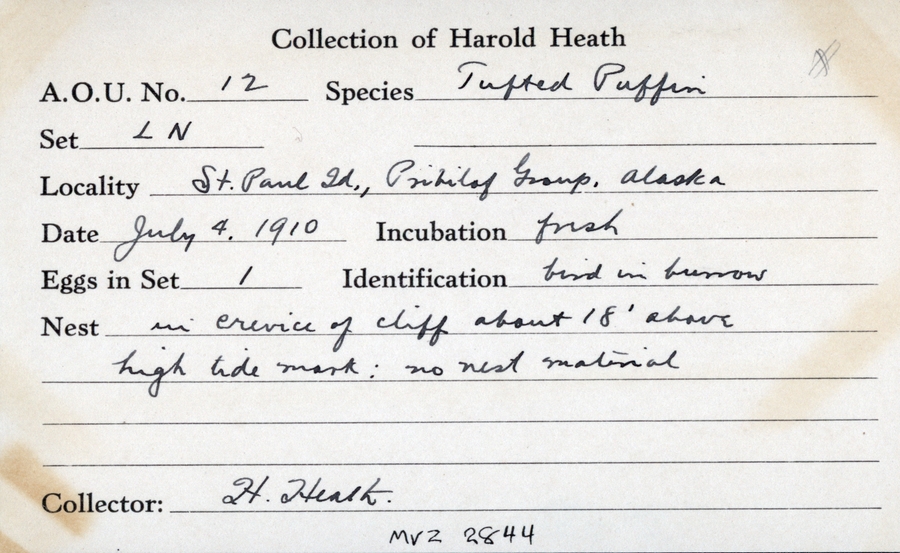 Collection of Harold Heath
A.O.U. No. 12 Species Tufted Puffin
Set L N
Locality St. Paul Id., Pribilof Group. Alaska
Date July 4. 1910 Incubation fresh
Eggs in Set 1 Identification bird in burrow
Nest in crevice of cliff about 18' above
high tide mark: no nest material
Collector: H. Heath.
MVZ 2844